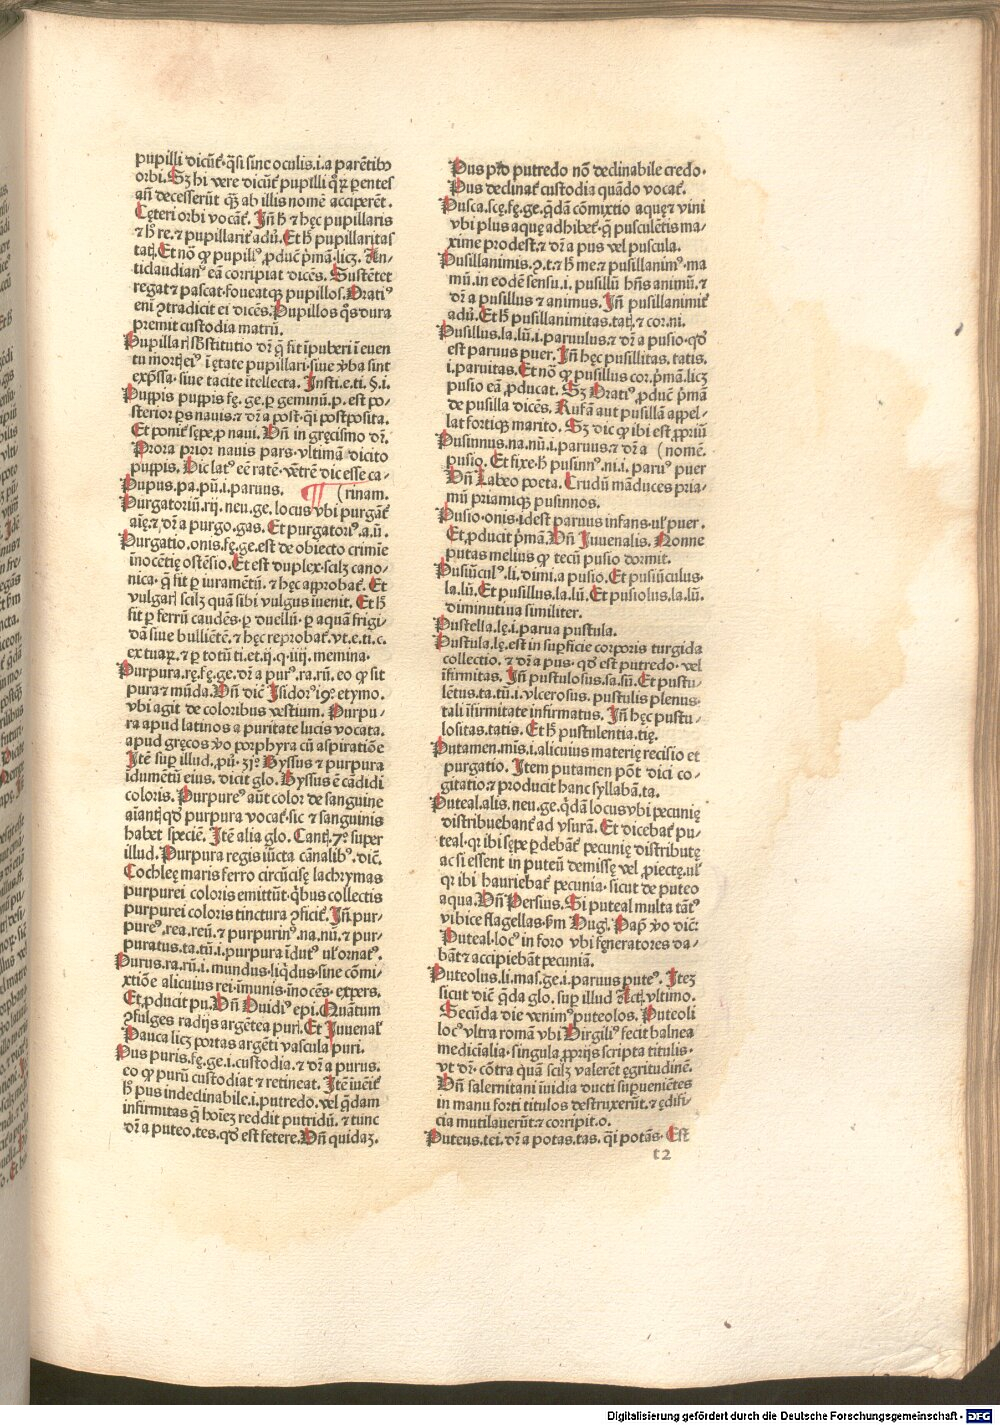 pupilli dicūt᷒·q̄si sine oculis.i.a parētibꝰ
orbi. Sꝫ hi vere dicūt᷒ pupilli qͦꝝ pentes
añ decesserūt qꝫ ab illis nomē acciperēt.
Cęteri orbi vocāt᷒. Iñ h̄ ⁊ hęc pupillaris
⁊ h̄ re.⁊ pupillarit᷒ adū. Et h̄ pupillaritas
Et nō ꝙ pupillꝰ ꝓduc̄ pͥmā·licꝫ. An-
ticlaudianꝰ eā corripiat dicēs. Sustētet
regat ⁊ pascat·foueatqꝫ pupillos. Oratiꝰ
eni ꝯtradicit ei dicēs. Pupillos qͦs dura
premit custodia matrū.
Pupillaris sbstitutio dr̄ q̄ fit ĩpuberi ĩ euen
tu mortꝭ eiꝰ ĩ ętate pupillari·siue ꝟba sint
exp̄ssa·siue tacite ĩtellecta. Insti.e.ti.§.i.
Puppis puppis fę.ge.ꝑ geminū.p.est po-
sterior ꝑs nauis.⁊ dr̄ a post·qͥ postposita.
Et ponit᷒ sępe ꝓ naui. Vñ in gręcismo dr̄.
Prora prior nauis pars·vltimā dicito
puppis. Dic latꝰ eē ratē·vētrē dic esse ca-
Pupus.pa.pū.i.paruus. ¶ (rinam.
Purgatoriū.rij.neu.ge. locus vbi purgāt᷒
aīę.⁊ dr̄ a purgo.gas. Et purgatoriꝰ.a.ū.
Purgatio.onis.fę.ge.est de obiecto crimīe
inocētię ostēsio. Et est duplex·scilꝫ cano-
nica·q̄ fit ꝑ iuramētū.⁊ hęc approbat᷒. Et
vulgarꝭ scilꝫ quā sibi vulgus iuenit. Et h̄
fit ꝑ ferrū caudēs·ꝑ duellū·ꝑ aquā frigi-
dā siue bulliētē.⁊ hęc reprobat᷒.vt.e.ti.c.
ex tuaꝝ.⁊ ꝑ totū ti.et.ij.q.iiij.memina·
Purpura.rę.fę.ge.dr̄ a purꝰ.ra.rū.eo ꝙ sit
pura ⁊ mūda. Vñ dic̄ Isidorꝰ i9ͦ etymo.
vbi agit de coloribus vestium. Purpu-
ra apud latinos a puritate lucis vocata.
apud gręcos ꝟo porphyra cū aspiratiōe
Itē suꝑ illud.ꝓū.31ͦ. Byssus ⁊ purpura
idumētū eius.dicit glo. Byssus ē cādidi
coloris. Purpureꝰ aūt color de sanguine
aīantꝭ qd̄ purpura vocat᷒·sic ⁊ sanguinis
habet speciē. Itē alia glo. Cantꝭ.7ͦ super
illud. Purpura regis iūcta cānalibꝰ.dic̄.
Cochleę maris ferro circūcisę lachrymas
purpurei coloris emittūt·qͥbus collectis
purpurei coloris tinctura ꝯficit᷒. Iñ pur-
pureꝰ.rea.reū.⁊ purpurinꝰ.na.nū.⁊ pur-
puratus.ta.tū.i.purpura ĩdutꝰ ul᷒ ornatꝰ.
Purus.ra.rū.i.mundus·liqͥdus·sine cōmi-
xtiōe alicuius rei·īmunis·inocēs·expers.
Et ꝓducit pu. Vñ Ouidiꝰ epi. Quātum
ꝯfulges radijs argētea purꝭ. Et Iuuenal᷒
Pauca licꝫ portas argēti vascula puri.
Pus puris.fę.ge.i.custodia.⁊ dr̄ a purus.
eo ꝙ purū custodiat ⁊ retineat. Itē iuēit᷒
h̄ pus indeclinabile.i.putredo.vel q̄dam
infirmitas q̄ hoīeꝫ reddit putridū.⁊ tunc
dr̄ a puteo.tes.qd̄ est fetere. Vñ quidaꝫ.
Pus ꝓ putredo nō declinabile credo·
Pus declinat᷒ custodia quādo vocat᷒.
Pusca.scę.fę.ge.q̄dā cōmixtio aquę ⁊ vini
vbi plus aquę adhibet᷒·q̄ pusculētis ma-
xime prodest.⁊ dr̄ a pus vel puscula.
Pusillanimis.ꝯ.t.⁊ h̄ me.⁊ pusillanimꝰ·ma
mū.in eodē sensu.i.pusillū hñs animū.⁊
dr̄ a pusillus ⁊ animus. Iñ pusillanimit᷒
adū. Et h̄ pusillanimitas.tatꝭ.⁊ cor.ni.
Pusillus.la.lū.i.paruulus.⁊ dr̄ a pusio·qd̄
est paruus puer. Iñ hęc pusillitas.tatis.
i.paruitas. Et nō ꝙ pusillus cor.pͥmā.licꝫ
pusio eā ꝓducat. Sꝫ Oratiꝰ ꝓduc̄ pͥmā
de pusilla dicēs. Rufam aut pusillā appel-
lat fortiqꝫ marito. Sꝫ dic ꝙ ibi est ꝓpriū
Pusinnus.na.nū.i.paruus.⁊ dr̄ a (nomē.
pusio. Et fixe·h̄ pusinnꝰ.ni.i.paruꝰ puer
Vñ Labeo poeta. Crudū māduces pria-
mū priamiqꝫ pusinnos.
Pusio·onis·idest paruus infans·ul᷒ puer.
Et ꝓducit pͥmā. Vñ Iuuenalis. Nonne
putas melius ꝙ tecū pusio dormit.
Pusiūculꝰ.li.dimi.a pusio. Et pusiūculus.
la.lū. Et pusillus.la.lū. Et pusiolus.la.lū.
diminutiua similiter.
Pustella.lę.i.parua pustula.
Pustula.lę.est in suꝑficie corporis turgida
collectio.⁊ dr̄ a pus·qd̄ est putredo·vel
īfirmitas. Iñ pustulosus.sa.sū. Et pustu-
lētus.ta.tū.i.vlcerosus. pustulis plenus·
tali ĩfirmitate infirmatus. Iñ hęc pustu-
lositas.tatis. Et h̄ pustulentia.tię.
Putamen.mis.i.alicuius materię recisio et
purgatio. Item putamen pōt dici co-
gitatio.⁊ producit hanc syllabā.ta.
Puteal.alis.neu.ge.q̄dā locus vbi pecunię
distribuebant᷒ ad vsurā. Et dicebat᷒ pu-
teal·qꝛ ibi sępe ꝑdebāt᷒ pecunię distributę
ac si essent in puteū demissę vel ꝓiectę.ul᷒
qꝛ ibi hauriebat᷒ pecunia·sicut de puteo
aqua. Vñ Persius. Si puteal multa tātꝰ
vibice flagellas·s̄m Hug. Papꝭ ꝟo dic̄:
Puteal·locꝰ in foro vbi fęneratores da-
bāt ⁊ accipiebāt pecuniā.
Puteolus.li.mas.ge.i.paruus puteꝰ. Iteꝫ
sicut dic̄ q̄da glo.suꝑ illud Actꝭ.vltimo.
Secūda die venimꝰ puteolos. Puteoli
locꝰ vltra romā vbi Virgiliꝰ fecit balnea
medicīalia·singula ꝓprijs scripta titulis·
vt dr̄·cōtra quā scilꝫ valerēt ęgritudinē.
Vñ salernitani iuidia ducti supuenietes
in manu forti titulos destruxerūt.⁊ ędifi-
cia mutilauerūt.⁊ corripit.o.
Puteus.tei.dr̄ a potas.tas. qͥ potās· Est
t2
Digitalisierung gefördert durch die Deutsche Forschungsgemeinschaft - DFG